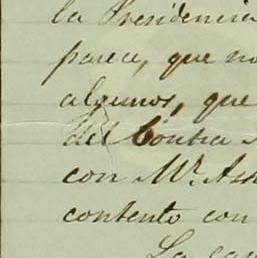 la Presidencia
parece, que no
algunos, que
del Contra
con Mr. Ash
contento con
La